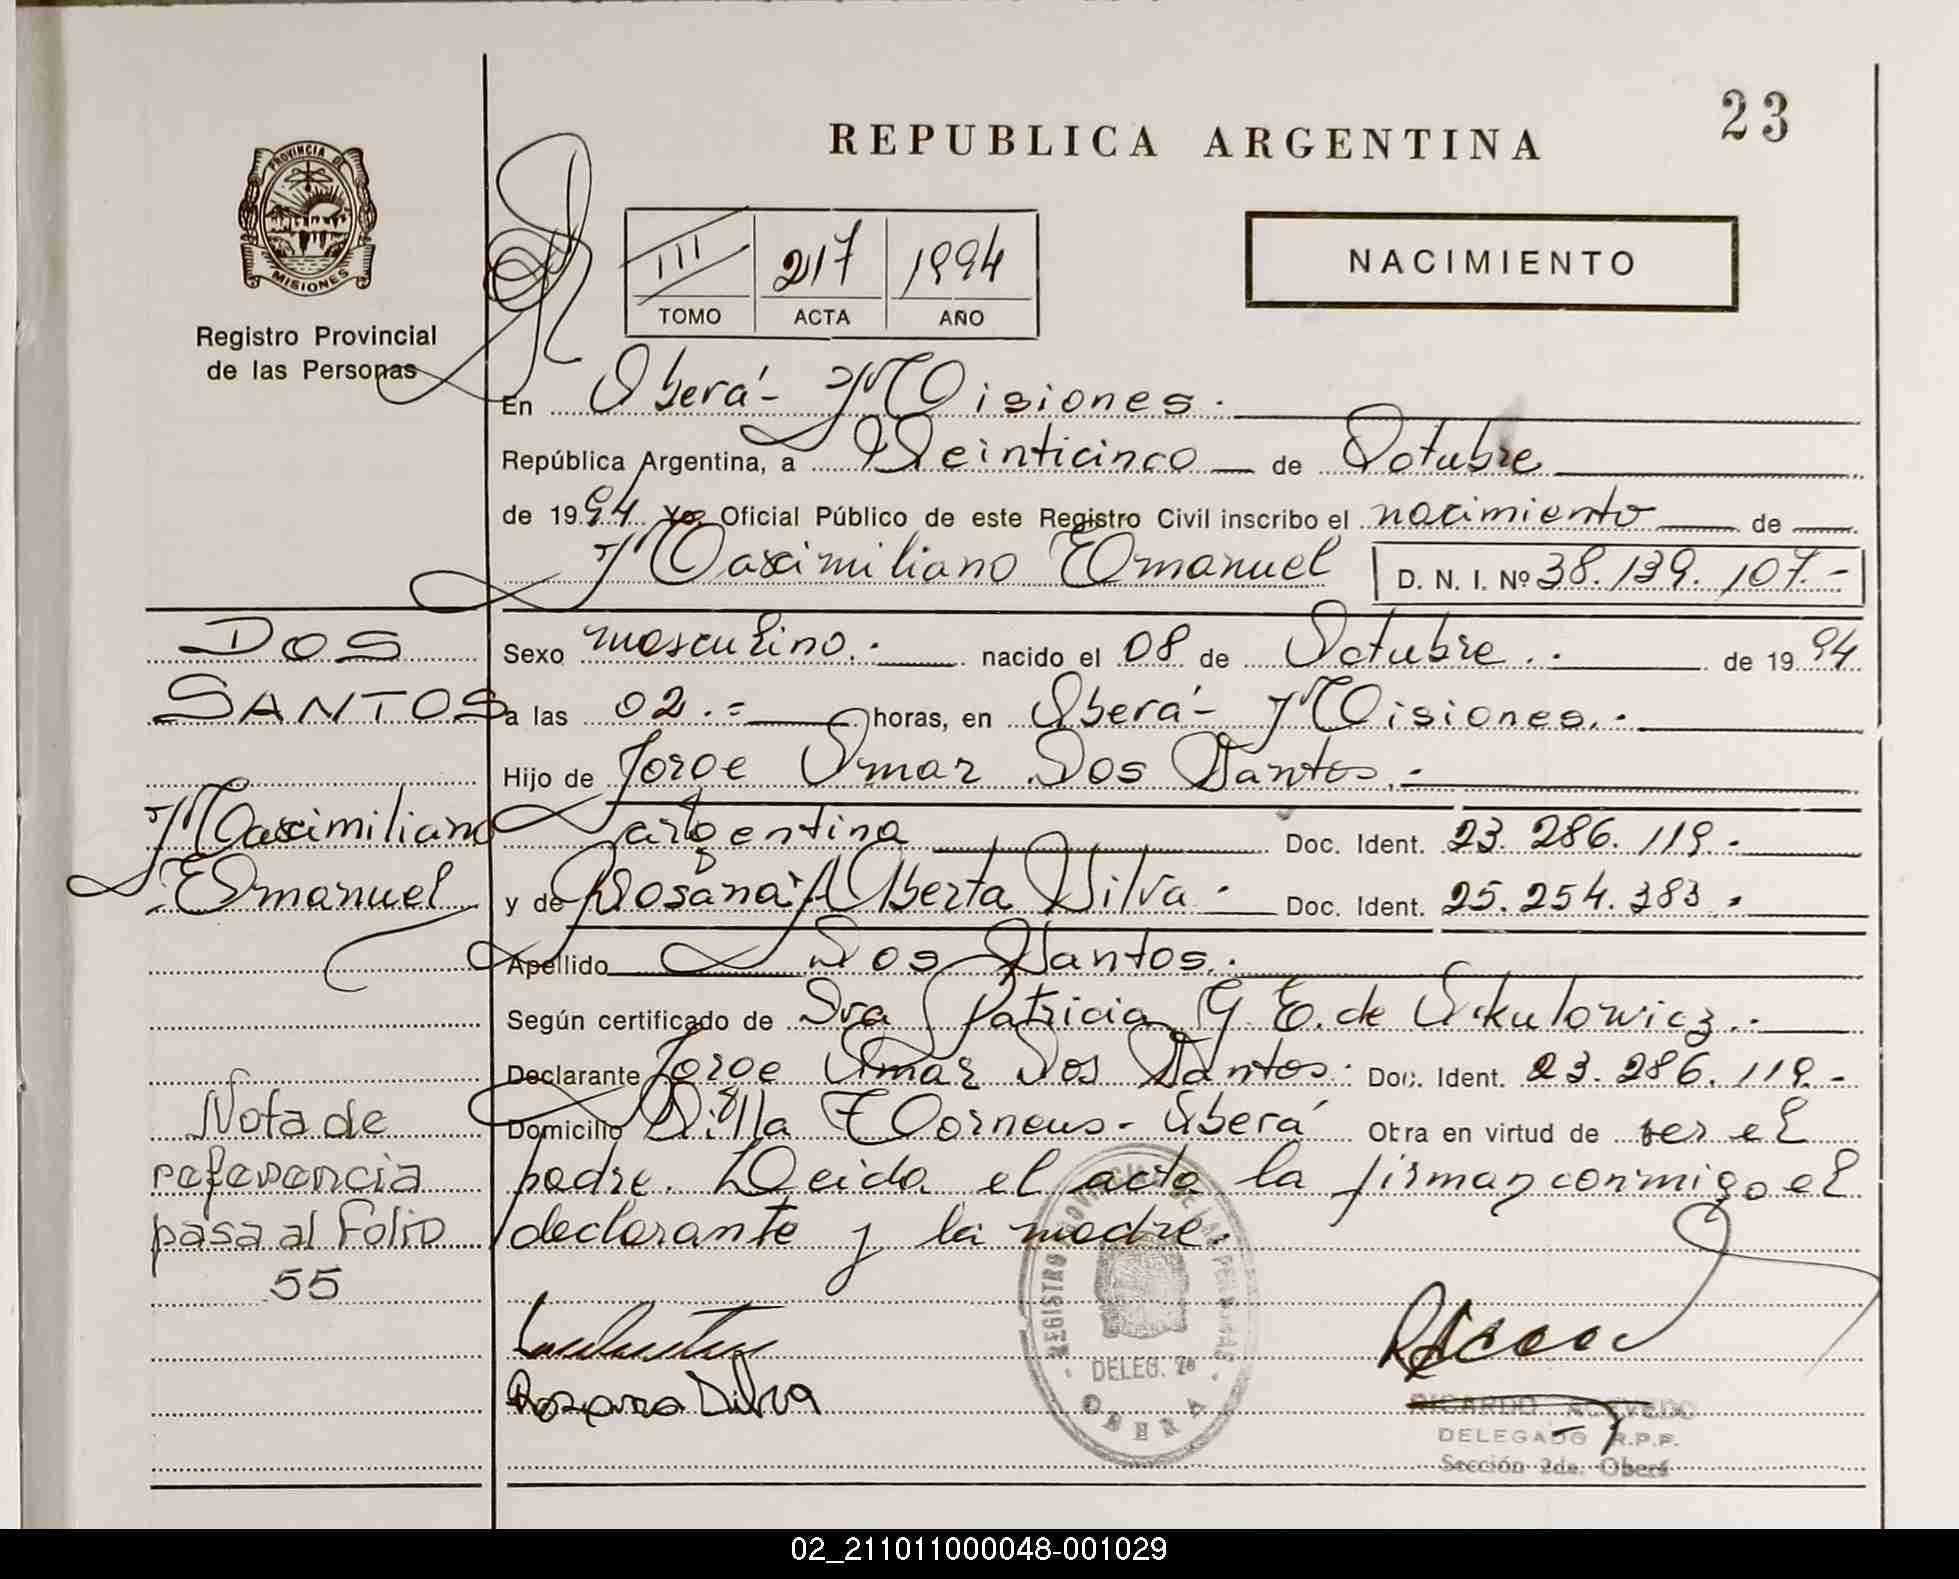 23
REPUBLICA ARGENTINA
PROVINCIA DE
MISIONES
Registro Provincial
de las Personas
III 217 1994
TOMO ACTA AÑO
NACIMIENTO
En Oberá - Misiones.
República Argentina, a Veinticinco de Octubre
de 1994. Yo, Oficial Público de este Registro Civil inscribo el nacimiento de
Maximiliano Emanuel D. N. I. Nº 38.139.107.-
DOS
SANTOS
Maximiliano
Emanuel
Sexo masculino.- nacido el 08 de Octubre.- de 1994
a las 02.= horas, en Oberá - Misiones.-
Hijo de Jorge Omar Dos Santos.-
argentina Doc. Ident. 23.286.119.-
y de Rosana Alberta Silva.- Doc. Ident. 25.254.383.-
Apellido Dos Santos.-
Según certificado de Dra Patricia G E. de Sikulowicz.-
Declarante Jorge Omar Dos Santos. Doc. Ident. 23.286.119.-
Domicilio Villa - Oberá Obra en virtud de ser el
padre. Leida el acta la firman conmigo el
declarante y la madre.
Nota de
referencia
pasa al Folio
55
Rosana Silva
REGISTRO PROVINCIAL DE LAS PERSONAS
DELEG. 2a
OBERA
RICARDO ACEVEDO
DELEGADO R.P.P.
Sección 2da. Oberá
02_211011000048-001029